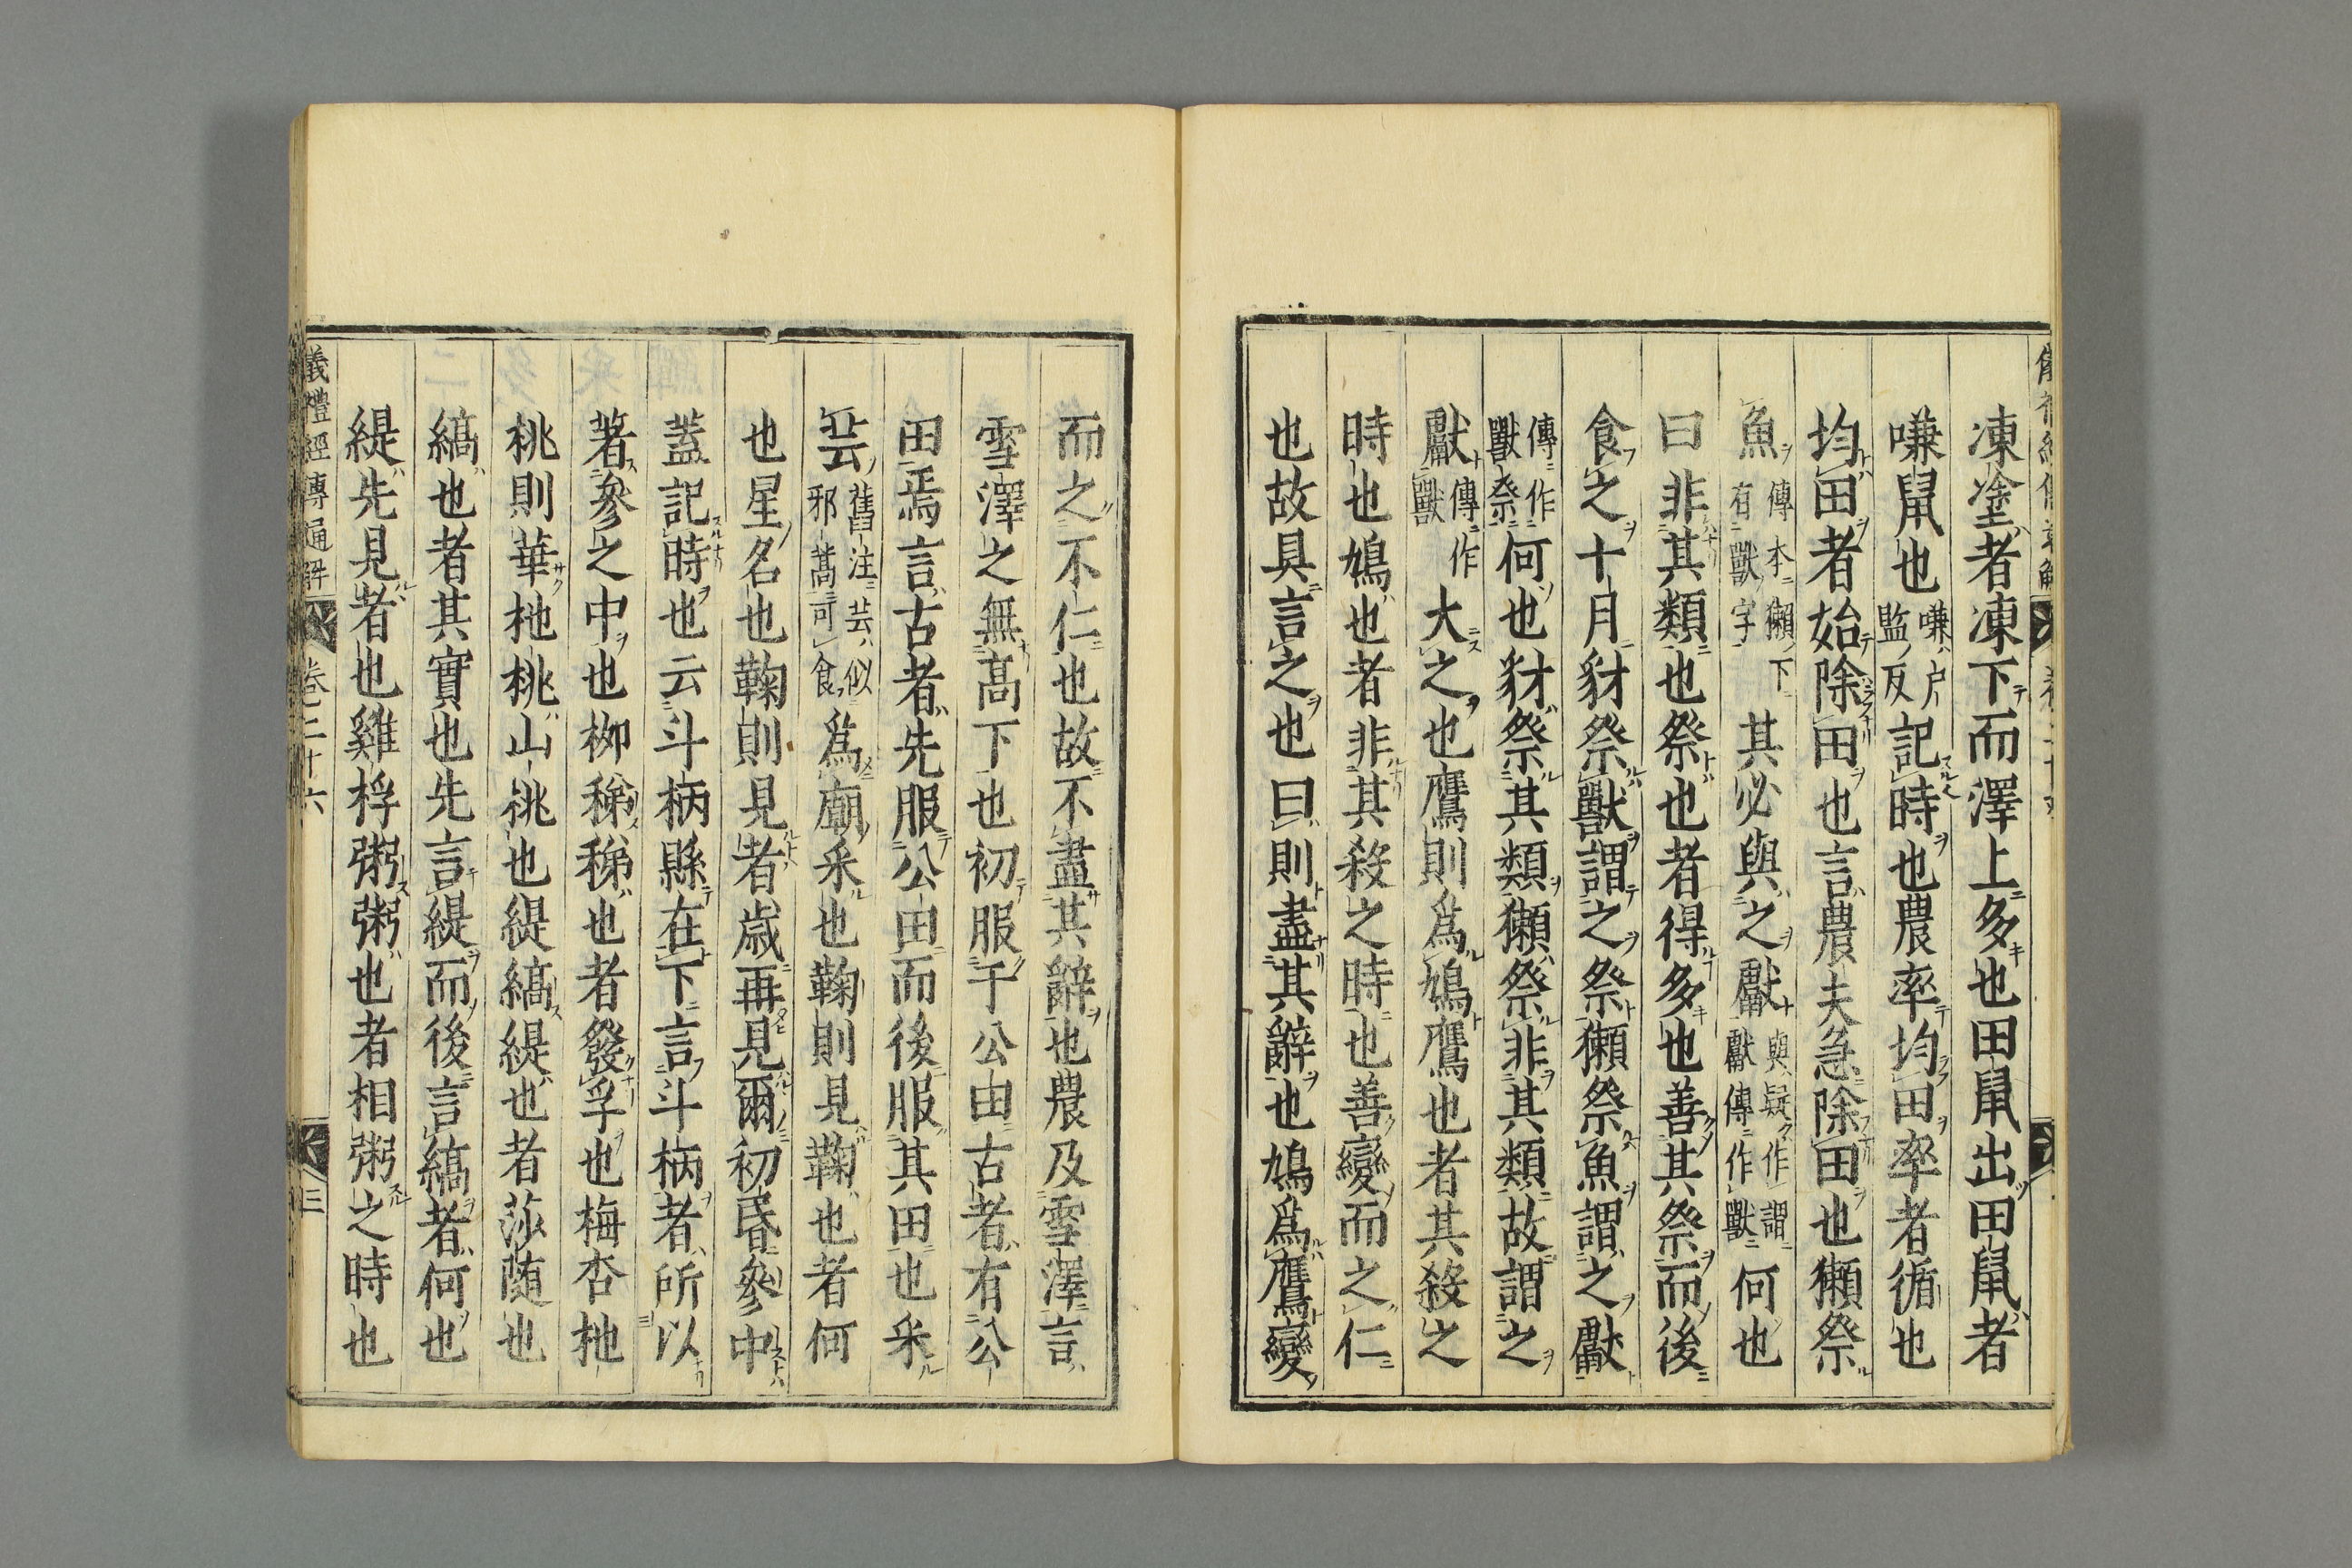 凍塗者凍下而澤上多也田鼠出田鼠者
嗛鼠也嗛户監反記時也農率均田率者循也
均田者始除田也言農夫急除田也獺祭
魚傳本獺下有獸字其必與之獻與疑作謂獻傳作獸何也
曰非其類也祭也者得多也善其祭而後
食之十月豺祭獸謂之祭獺祭魚謂之獻
傳作獸祭何也豺祭其類獺祭非其類故謂之
獻傳作獸大之也鷹則爲鳩鷹也者其殺之
時也鳩也者非其殺之時也善變而之仁
也故具言之也曰則盡其辭也鳩爲鷹變
而之不仁也故不盡其辭也農及雪澤言
雪澤之無高下也初服于公田古者有公
田焉言古者先服公田而後服其田也采
芸舊注芸似邪蒿可食爲廟采也鞠則見鞠也者何
也星名也鞠則見者歳再見爾初昏參中
蓋記時也云斗柄縣在下言斗柄者所以
著參之中也柳稊稊也者發孚也梅杏杝
桃則華杝桃山桃也緹縞緹也者莎随也
縞也者其實也先言緹而後言縞者何也
緹先見者也雞桴粥粥也者相粥之時也
儀禮經傳通解 卷二十六 三